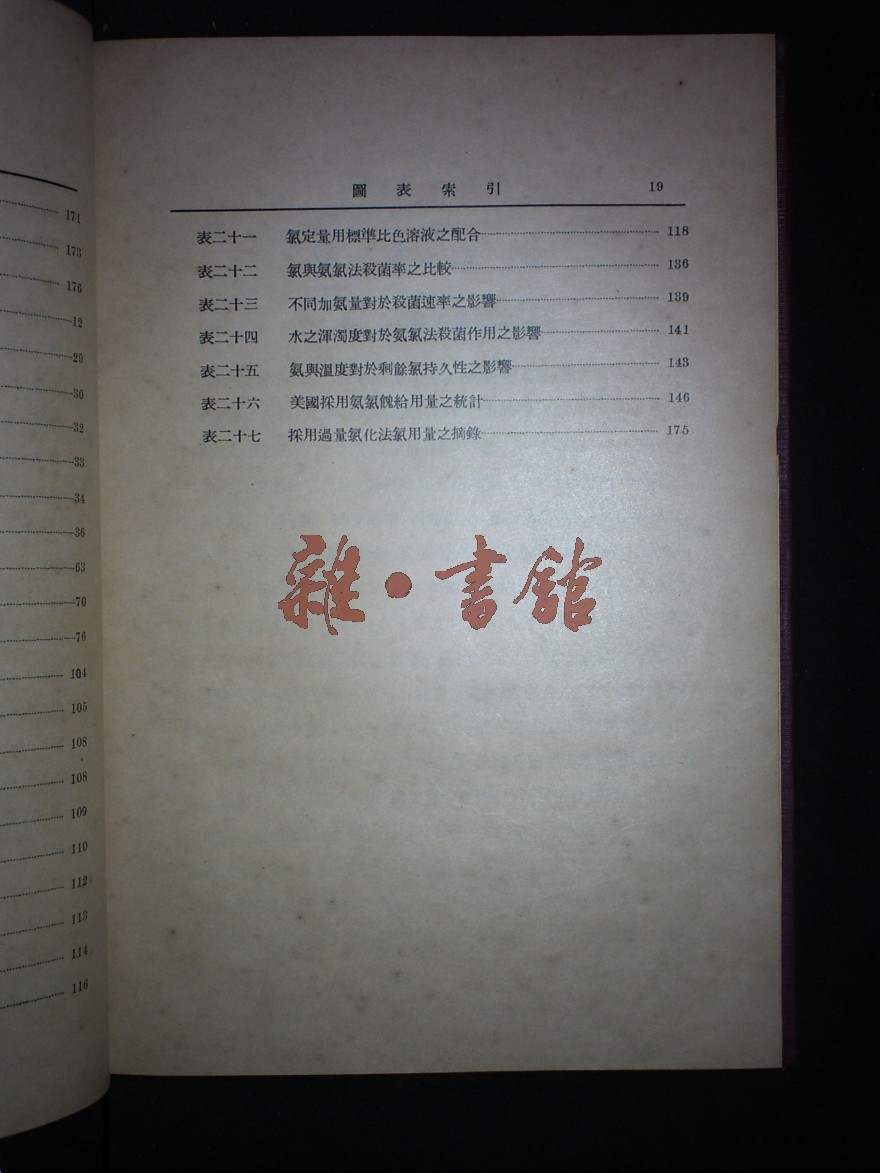 171
173
176
12
29
30
32
33
34
36
63
70
76
104
105
108
108
109
110
112
113
114
116
圖表索引 19
表二十一 氯定量用標準比色溶液之配合 118
表二十二 氯與氨氯法殺菌率之比較 136
表二十三 不同加氨量對於殺菌速率之影響 139
表二十四 水之渾濁度對於氨氯法殺菌作用之影響 141
表二十五 氨與溫度對於剩餘氯持久性之影響 143
表二十六 美國採用氨氯餽給用量之統計 146
表二十七 採用過量氯化法氯用量之摘錄 175
雜·書館